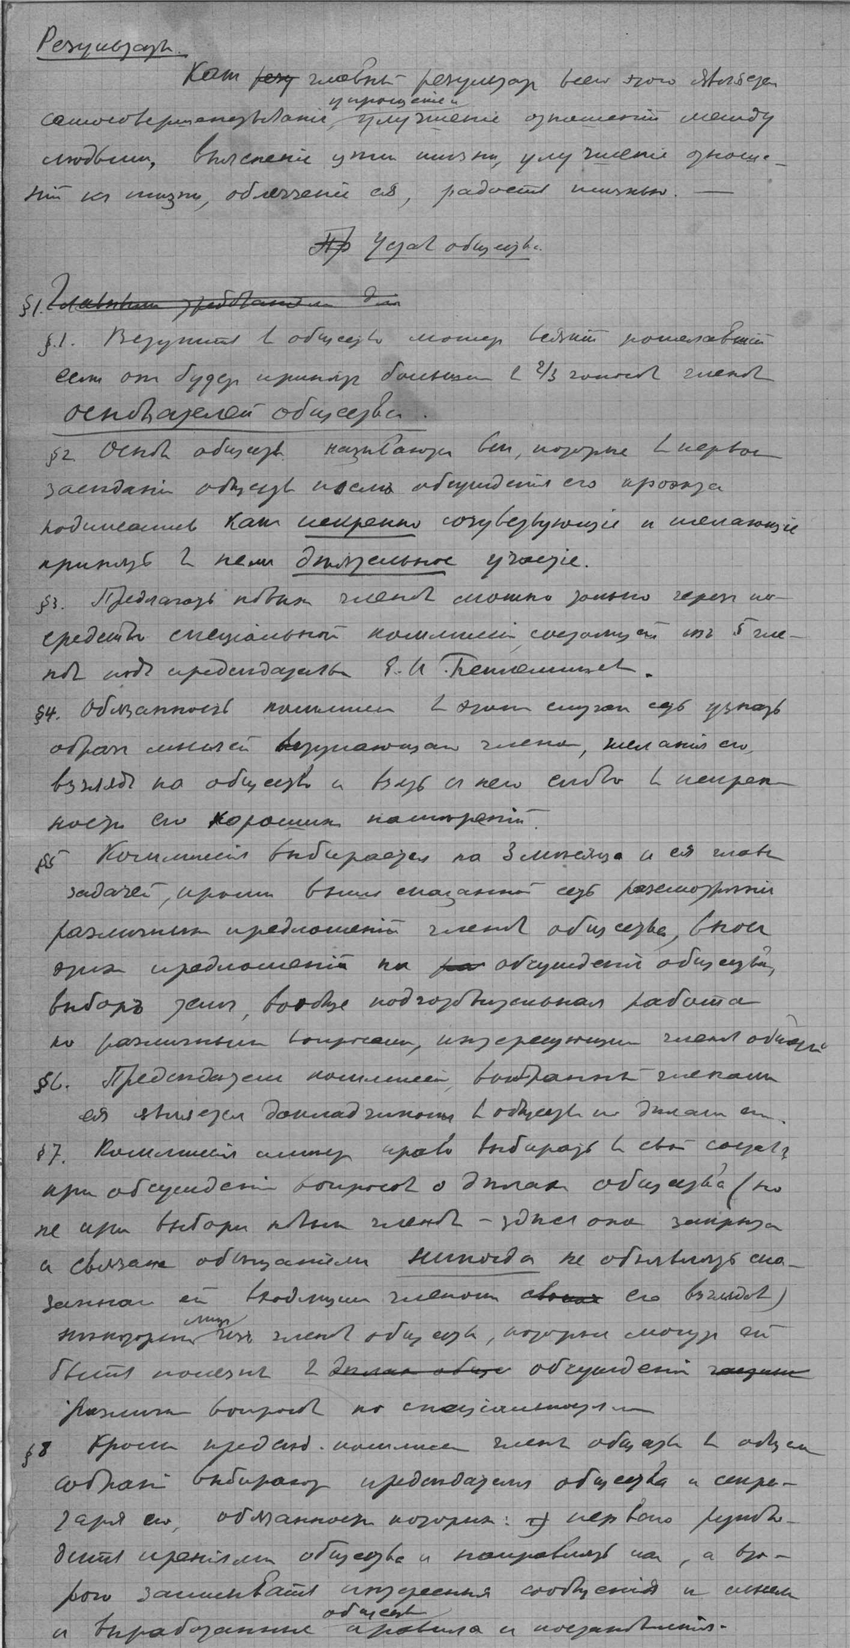 Результаты.
Как главный результат всего этого является
упрощение и
самосовершенствованіе, улучшеніе отношеній между
людьми, выясненіе цели жизни, улучшеніе отноше-
ній къ жизни, облегченіе ея, радость жизнью. —
Пр Устав общества.
§1. Главными требованіями для
§.1. Вступить в общество может всякій пожелавшій
если он будет принят большин в 2/3 голосов членов
основателей общества.
§2 Основ обществ. называются все, которые в первом
заседаніи общества после обсужденія его проэкта
подписались как искренно сочувствующіе и желающіе
принять в нем деятельное участіе.
§3. Предлагать новых членов можно только через по-
средство спеціальной коммиссіи, состоящей из 5 чле-
нов под председательс
§4. Обязанность коммиссіи в этом случае есть узнать
образ мыслей вступающаго члена, желанія его,
взгляд на общество и взять с него слово в искрен
ности его хороших намереній.
§5 Коммиссія выбирается на 3 месяца и ея главн
задачей, кроме выше сказанной есть разсмотреніе
различных предложеній членов общества, внос
этих предложеній на обсужденіе общества,
выбор тем, вообще подготовительная работа
по различным вопросам, интересующим членов общества
§6. Председатель коммиссіи, выбранный членами
ея является докладчиком в обществе по делам ея.
§7. Коммиссія имеет право выбирать в свой состав
при обсужденіи вопросов о делах общества (но
не при выборе новых членов – здесь она закрыта
и связана обещаніем никогда не объявлять ска-
заннаго ей входящим членом своих его взглядов)
лиц
некоторых из членов общества, которые могут ей
быть полезны в делах общес обсужденіи
различн вопросов по спеціальностям
§8 Кроме председ. коммиссіи члены общества в общем
собраніи выбирают председателя общества и секре-
таря его, обязанности которых: перваго руково-
дить преніями общества и направлять их, а вто-
рого записывать интересныя сообщенія и мненія
обществ
и выработанные правила и постановленія.